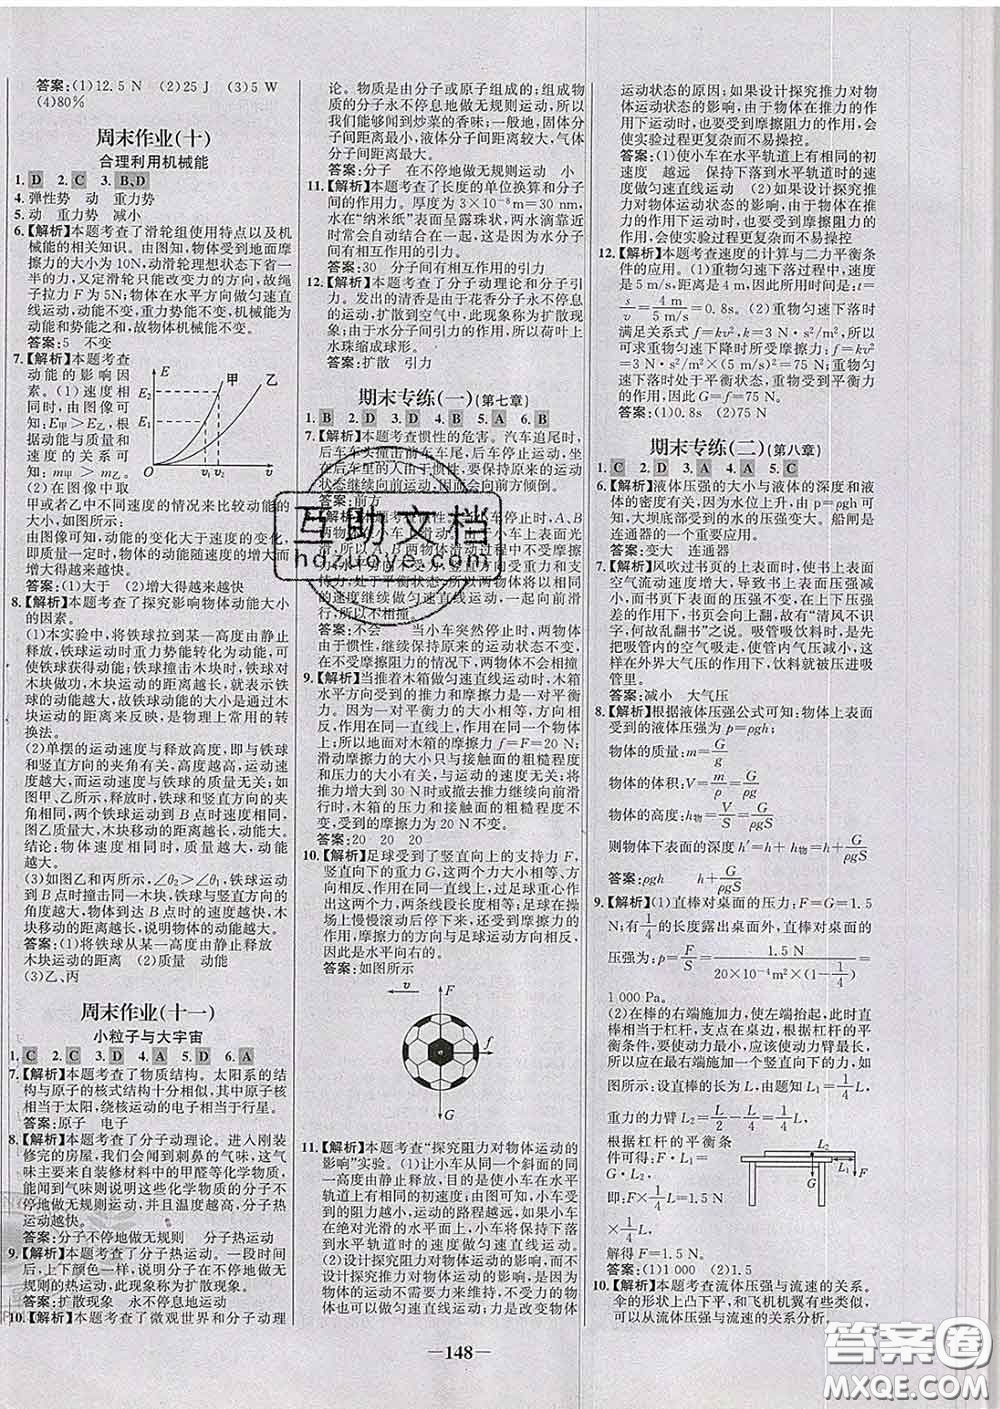 答案:(1)12.5 N (2)25 J (3)5 W
(4)80%
周末作业(十)
合理利用机械能
1. D 2. C 3. B、D
4. 弹性势 动 重力势
5. 动 重力势 减小
6.【解析】本题考查了滑轮组使用特点以及机
械能的相关知识。由图知,物体受到地面摩
擦力的大小为10N,动滑轮理想状态下省一
半的力,又定滑轮只能改变力的方向,故绳
子拉力F为5N;物体在水平方向做匀速直
线运动,动能不变,重力势能不变,机械能为
动能和势能之和,故物体机械能不变。
答案:5 不变
7.【解析】本题考查
动能的影响因
素。(1)速度相
同时,由图像可
知E甲>E乙,根
据动能与质量和
速度的关系可
知:m甲>m乙。
(2)在图像中取
甲或者乙中不同速度的情况来比较动能的
大小,如图所示:
由图像可知,动能的变化大于速度的变化,即
质量一定时,物体的动能随速度的增大而
增大得越来越快
答案:(1)大于 (2)增大得越来越快
8.【解析】本题考查了探究影响物体动能大小
的因素。
(1)本实验中,将铁球拉到某一高度由静止
释放,铁球运动时重力势能转化为动能,可
使铁球获得动能;铁球撞击木块时,铁球对
木块做功,木块移动距离越长,就表示铁球
的动能越大,故铁球动能的大小是通过木
块运动的距离来反映,是物理上常用的转
换法。
(2)单摆的运动速度与释放高度,即与铁球
和竖直方向的夹角有关,高度越高,夹角越
大,而运动速度与铁球的质量无关;
如图甲、乙所示,释放时,铁球和竖直方向的夹
角相同,两个铁球到达B点时速度相同,但
图乙质量大,木块移动的距离越大,动能大。
结论:物体速度相同时,质量越大,动能
越大。
(3)如图乙和丙所示,∠θ₂>∠θ₁,铁球运动
到B点时撞击同一木块,铁球与竖直方向的
角度越大,物体到达B点时的速度越大,木
块运动的距离越长,说明物体的动能越大。
答案:(1)将铁球从某一高度由静止释放
木块移动的距离 (2)质量 动能
(3)乙、丙
周末作业(十一)
小粒子与大宇宙
1. C 2. C 3. D 4. A 5. D 6. A
7.【解析】本题考查了物质结构。太阳系的结
构与原子的核式结构十分相似,其中原子核
相当于太阳,绕核运动的电子相当于行星。
答案:原子 电子
8.【解析】本题考查了分子动理论。进入刚装
修完的房屋,我们会闻到刺鼻的气味,这气
味主要来自装修材料中的甲醛等化学物质,
能闻到气味则说明这些化学物质的分子不
停地做无规则运动,并且温度越高,分子热
运动越快。
答案:分子不停地做无规则 分子热运动越快
9.【解析】本题考查了分子热运动。一段时间
后,上下颜色一样,说明分子在永不停地做无
规则的热运动,此现象称为扩散现象。
答案:扩散现象 永不停息地运动
10.【解析】本题考查了微观世界和分子动理
论。物质是由分子或原子组成的;组成物质
的分子永不停息地做无规则运动,所以
我们能够闻到炒菜的香味;一般地,固体
分子间距离最小,液体分子间距较大,气体
分子间距离最大。
答案:分子 在不停地做无规则运动 小
11.【解析】本题考查了长度的单位换算和分子间
的作用力。厚度为3×10⁻⁸m=30 nm,
水在“纳米纸”表面呈露珠状,两水滴靠近
时会自动结合在一起,这一现象说明了分子
间有相互作用的引力。
答案:30 分子间有相互作用的引力
12.【解析】本题考查了分子动理论和分子引
力。发出的清香是由于花香分子永不停息
的运动,扩散到空气中,此现象称为扩散
现象;由于水分子间引力的作用,所以荷叶上
水珠缩成球形。
答案:扩散 引力
期末专练(一)(第七章)
1. B 2. D 3. D 4. B 5. A 6. B
7.【解析】本题考查惯性的危害。汽车追尾时,
后车车头撞击前车车尾,后车突然停止运动,
坐在后车里的人由于惯性,要保持原来的运动
状态继续向前运动,司机会向前方倾倒。
答案:前方
8.
答案:不会 当小车突然停止时,两物体
由于惯性,继续保持原来的运动状态不变,
在不考虑摩擦阻力的情况下,两物体不会相撞
9.【解析】当推着木箱做匀速直线运动时,木箱
水平方向受到的推力和摩擦力是一对平衡
力。因为一对平衡力的大小相等,方向相
反,作用在同一直线上,作用在同一个物体
上;所以地面对木箱的摩擦力f=F=20 N;
滑动摩擦力的大小只与接触面的粗糙程度
和压力的大小有关,与运动的速度无关;当
推力增大到30N时或撤去推力继续向前滑
行时,木箱的压力和接触面的粗糙程度不
变,受到的摩擦力为20 N不变。
答案:20 20 20
10.【解析】足球受到了竖直向上的支持力F,
竖直向下的重力G,其大小相等,过足球重心作
出这两个力,即为所求;如图所示,足球在操
场上慢慢滚动后停下来,还受到摩擦力的
作用,摩擦力的方向与足球运动方向相反,因
此是水平向右的。
答案:如图所示
11.【解析】本题考查“探究阻力对物体运动的
影响”实验。(1)让小车从同一个斜面的同
一高度由静止释放,目的是使小车在水平
轨道上有相同的初速度;由图可知,小车受
到的阻力越小,运动的路程越远,所以小车
在绝对光滑的水平面上,小车将保持下落
到水平轨道时的速度做匀速直线运动。
(2)设计探究阻力对物体运动的影响,而不
设计探究推力对物体运动的影响,是因为
物体的运动不需要力来维持,不受力的作用
可以做匀速直线运动,力是改变物体
运动状态的原因;如果设计探究推力对物体
运动状态的影响,由于物体在推力的作用
下运动时,还会受到摩擦阻力的作用而
使实验过程更复杂而不易操控。
答案:(1)使小车在水平轨道上有相同的初
速度 越远 保持下落到水平轨道时的速
度做匀速直线运动 (2)如果设计探究推力
对物体运动状态的影响,由于物体在
推力的作用下运动时,还会受到摩擦阻力的作
用,会使实验过程更复杂而不易操控
12.【解析】本题考查速度的计算与二力平衡条
件的应用。(1)重物匀速下落过程中,速度
是5 m/s,距离是4 m,因此所用时间是:t=
s/v=4 m/(5 m/s)=0.8s。(2)重物匀速下落时,
满足关系式f=kv²,k=3 N·s²/m²,所以
可求重物匀速下降时所受摩擦力;f=kv²
=3 N·s²/m²×(5m/s)²=75N;重物匀速
下落时处于平衡状态,受到的重力与摩擦
力大小相等,因此G=f=75 N。
答案:(1)0.8s (2)75 N
期末专练(二)(第八章)
1. C 2. D 3. A 4. A 5. C
6.【解析】液体压强的大小与液体的深度和液
体的密度有关,因为水位上升,由p=ρgh可
知,大坝底部所受的水的压强变大。船闸是
连通器的一个重要应用。
答案:变大 连通器
7.【解析】风吹过书页的上表面时,使书上表面
空气流动速度增大了,导致书页上表面压
强减小,而书页下表面压强不变,在上下压强
差的作用下,书页会向上翻,故有“清风不识字,
何故乱翻书”之说。吸管吸饮料时,是先
把吸管内的空气吸走,使管内气压减小,这样
在外界大气压的作用下,饮料就被压进吸
管里。
答案:减小 大气压
8.【解析】根据液体压强公式可知:物体上表面
受到的液体压强为p=ρgh;
物体的质量:m=G/g
物体的体积:V=m/ρ=G/ρg
物体的高度:h物=V/S=G/ρgS
则物体下表面的深度h′=h+h物=h+G/ρgS
答案:ρgh h+G/ρgS
9.【解析】(1)直棒对桌面的压力:F=G=1.5
N;有1/4的长度露出桌面外,直棒对桌面的
压强为:p=F/S=1.5 N/(20×10⁻⁴m²×(1-1/4))=
1 000 Pa。
(2)在棒的右端施加力,使左端抬起,此时直棒
相当于杠杆,支点在桌边,根据杠杆的平衡
条件可知,动力臂越大,动力越小,
所以应在最右端施加一个竖直向下的力,如
图所示:设直棒的长为L,则动力臂L₁=1/4L,
重力的力臂L₂=L/2-1/4L=1/4L,
根据杠杆的平衡条
件可得:F·L₁=
G·L₂,
即:F×1/4L=1.5 N
×1/4L
解得F=1.5 N。
答案:(1)1 000 (2)1.5
10.【解析】本题考查流体压强与流速的关系。
伞的形状上凸下平,和飞机机翼有些类似,
可以从流体压强与流速的关系分析。
E
E₂
E₁
O
v₁
v₂
v
甲
乙
v
F
f
G
L₂
L₁
F
G
互助文档
hdzuowe.com
—148—
答案圈
MXQE.COM